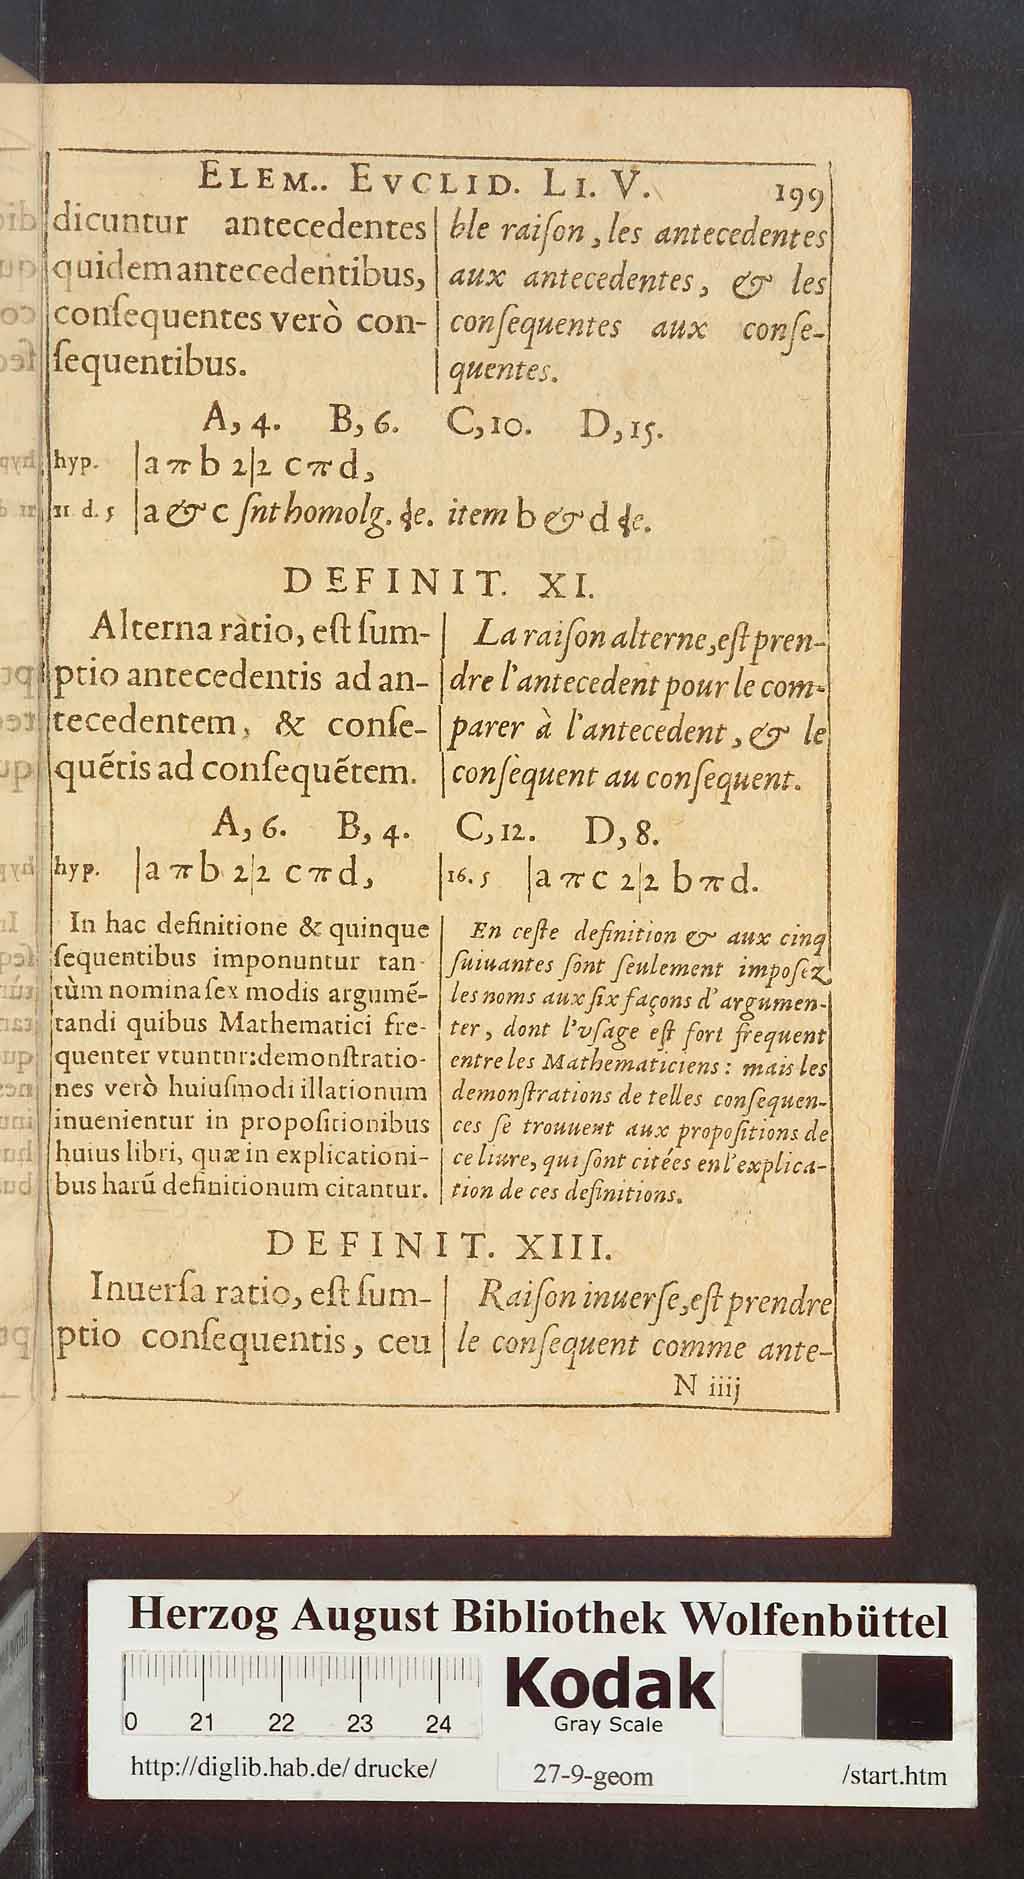 ELEM.. EVCLID. LI. V. 199
dicuntur antecedentes
quidem antecedentibus,
conſequentes verò con-
ſequentibus.
ble raiſon, les antecedentes
aux antecedentes, & les
conſequentes aux conſe-
quentes.
A, 4. B, 6. C, 10. D, 15.
hyp. |a π b 2|2 c π d,
11. d. 5 |a & c ſnt homolg. item b & d
DEFINIT. XI.
Alterna ràtio, eſt ſum-
ptio antecedentis ad an-
tecedentem, & conſe-
quẽtis ad conſequẽtem.
La raiſon alterne, eſt pren-
dre l'antecedent pour le com-
parer à l'antecedent, & le
conſequent au conſequent.
A, 6. B, 4. C, 12. D, 8.
hyp. |a π b 2|2 c π d, |16. 5 |a π c 2|2 b π d.
In hac definitione & quinque
ſequentibus imponuntur tan-
tùm nomina ſex modis argumẽ-
tandi quibus Mathematici fre-
quenter vtuntnr: demonſtratio-
nes verò huiuſmodi illationum
inuenientur in propoſitionibus
huius libri, quæ in explicationi-
bus harũ definitionum citantur.
En ceſte definition & aux cinq
ſuiuantes ſont ſeulement impoſez
les noms aux ſix façons d'argumen-
ter, dont l'vſage eſt fort frequent
entre les Mathematiciens: mais les
demonſtrations de telles conſequen-
ces ſe trouuent aux propoſitions de
ce liure, qui ſont citées en l'explica-
tion de ces definitions.
DEFINIT. XIII.
Inuerſa ratio, eſt ſum-
ptio conſequentis, ceu
Raiſon inuerſe, eſt prendre
le conſequent comme ante-
N iiij
Herzog August Bibliothek Wolfenbüttel
0 21 22 23 24
Kodak
Gray Scale
http://diglib.hab.de/drucke/ 27-9-geom /start.htm